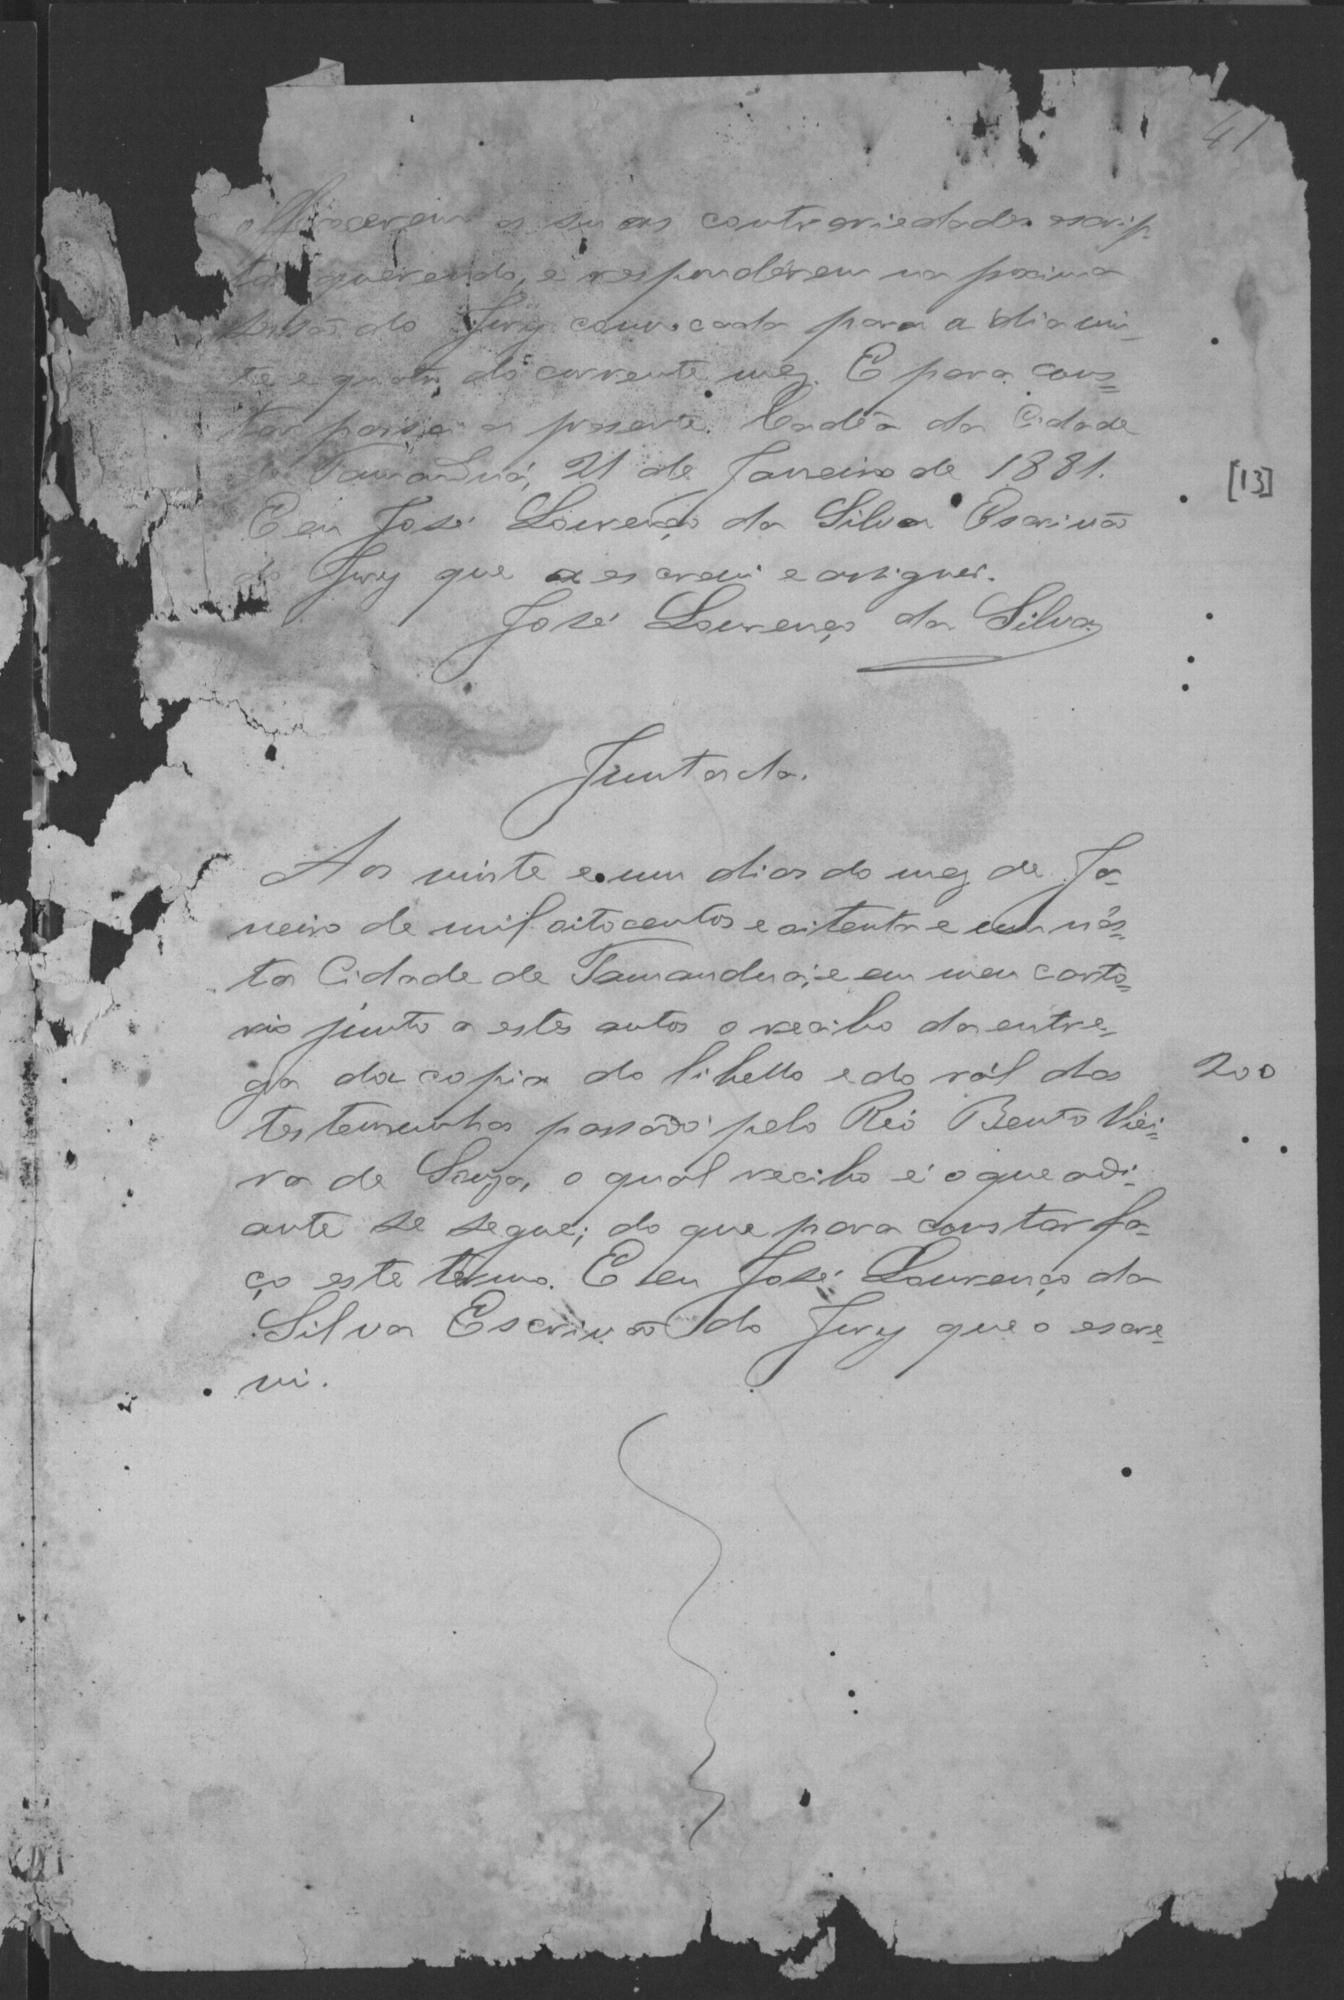 41
offerecerem as suas contrariedades escrip-
tas querendo, e respondêrem na proxima
sessão do Jury convocada para o dia vin-
te e quatro do corrente mez. E para cons=
tar passei a presente. Cadêa da Cidade
de Tamanduá, 21 de Janeiro de 1881.
[13]
E eu José Lourenço da Silva Escrivão
do Jury que a escrevi e assignei.
José Lourenço da Silva
Juntada.
Aos vinte e um dias do mez de Ja-
neiro de mil oitocentos e oitenta e um nés=
ta Cidade de Tamanduá, e em meu carto=
rio junto a estes autos o recibo da entre=
ga da copia do libello e do ról das
200
testemunhas passado pelo Réo Bento Viei=
ra de Souza, o qual recibo é o que adi-
ante se segue; do que para constar fa-
ço este termo. E eu José Lourenço da
Silva Escrivão do Jury que o escre=
vi.